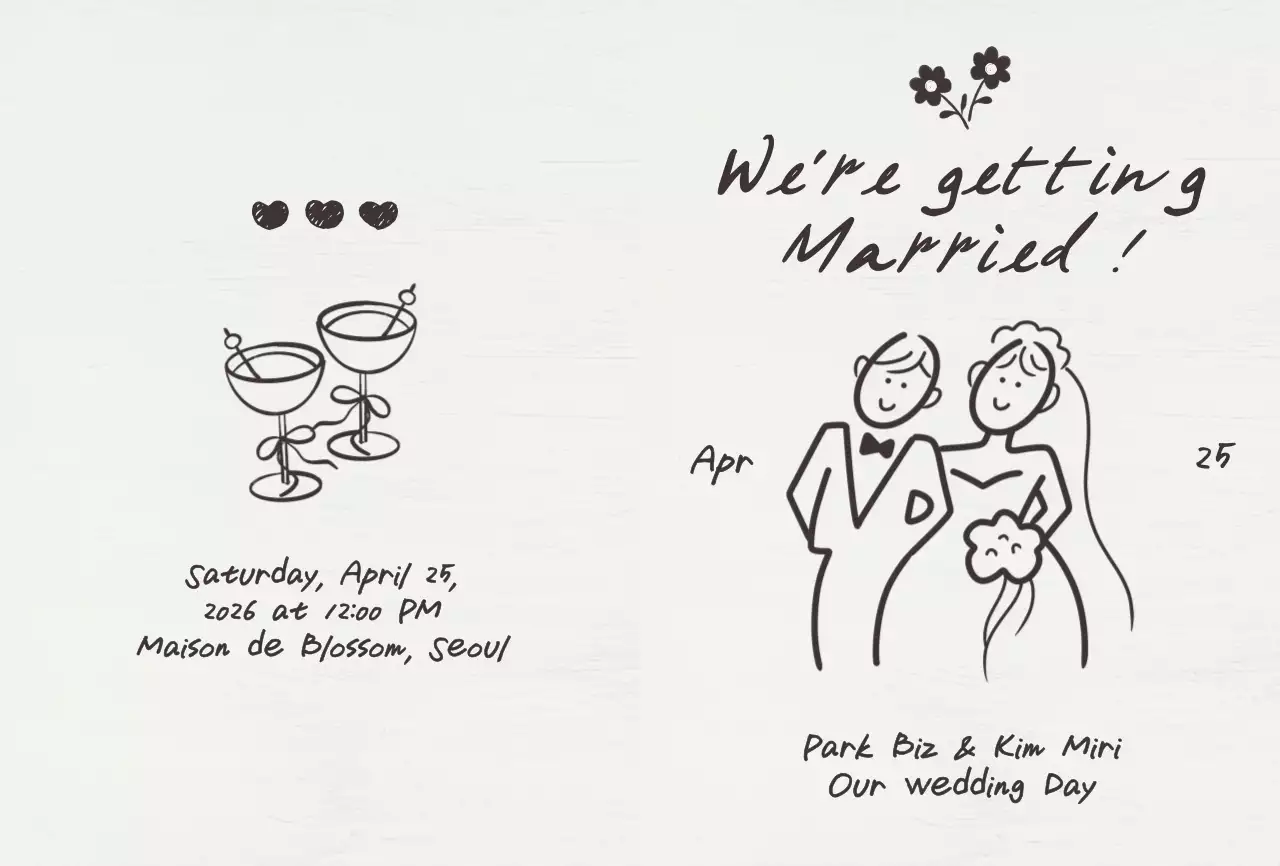 Saturday, April 25,
2026 at 12:00 PM
Maison de Blossom, Seoul
We're getting
Married !
Apr
25
Park Biz & Kim Miri
Our wedding Day